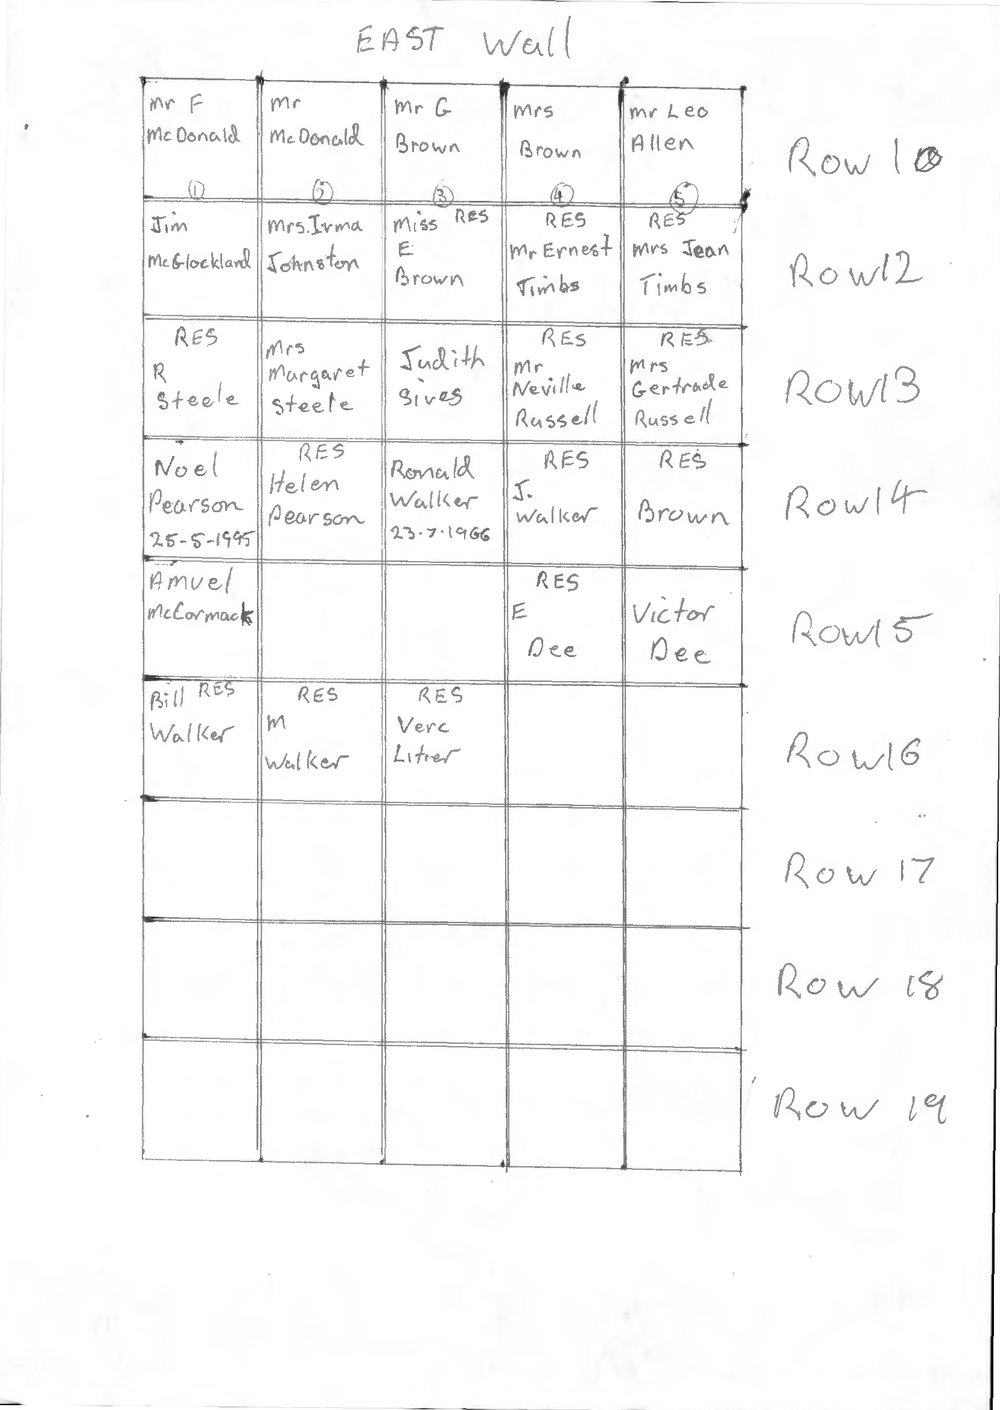 EAST Wall
Mr F
McDonald
①
Mr
McDonald
②
Mr G
Brown
③
Mrs
Brown
④
Mr Leo
Allen
⑤
Row 1
Jim
McGlockland
Mrs. Irma
Johnston
Miss RES
E
Brown
RES
Mr Ernest
Timbs
RES
Mrs Jean
Timbs
Row 12
RES
R
Steele
Mrs
Margaret
Steele
Judith
Sives
RES
Mr
Neville
Russell
RES
Mrs
Gertrade
Russell
Row 13
Noel
Pearson
25-5-1995
RES
Helen
Pearson
Ronald
Walker
23.7.1966
RES
J.
Walker
RES
Brown
Row 14
Amuel
McCormack
RES
E
Dee
Victor
Dee
Row 15
Bill RES
Walker
RES
M
Walker
RES
Verc
Row 16
Row 17
Row 18
Row 19